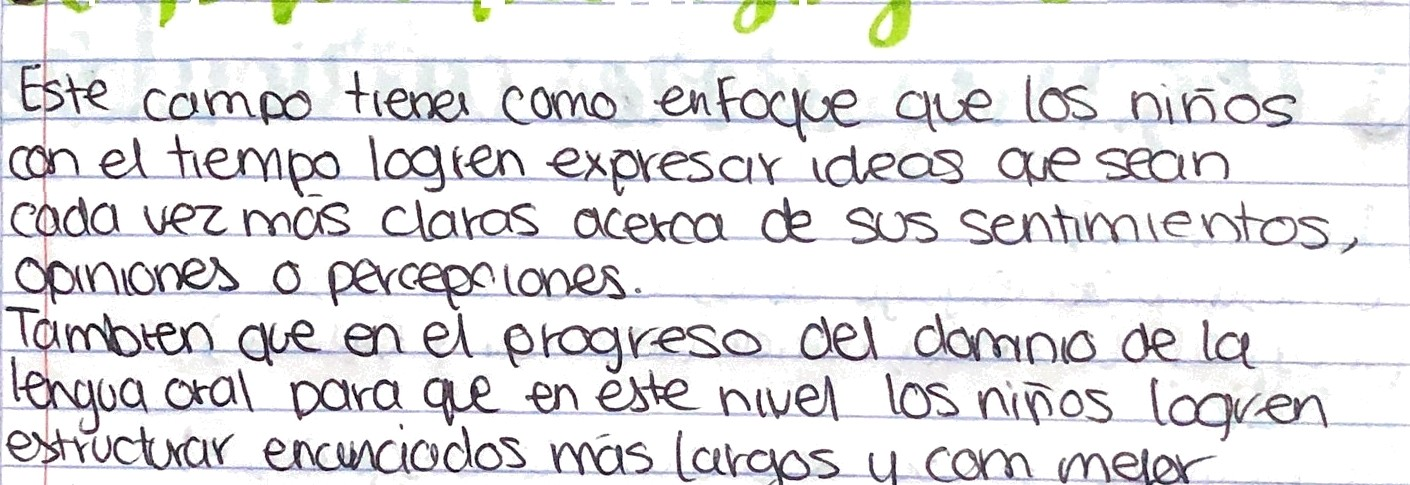 Este campo tiene como enfoque que los niños
con el tiempo logren expresar ideas que sean
cada vez más claras acerca de sus sentimientos,
opiniones o percepciones.
Tambien que en el progreso del dominio de la
lengua oral para que en este nivel los niños logren
estructurar encunciados más largos y com mejor